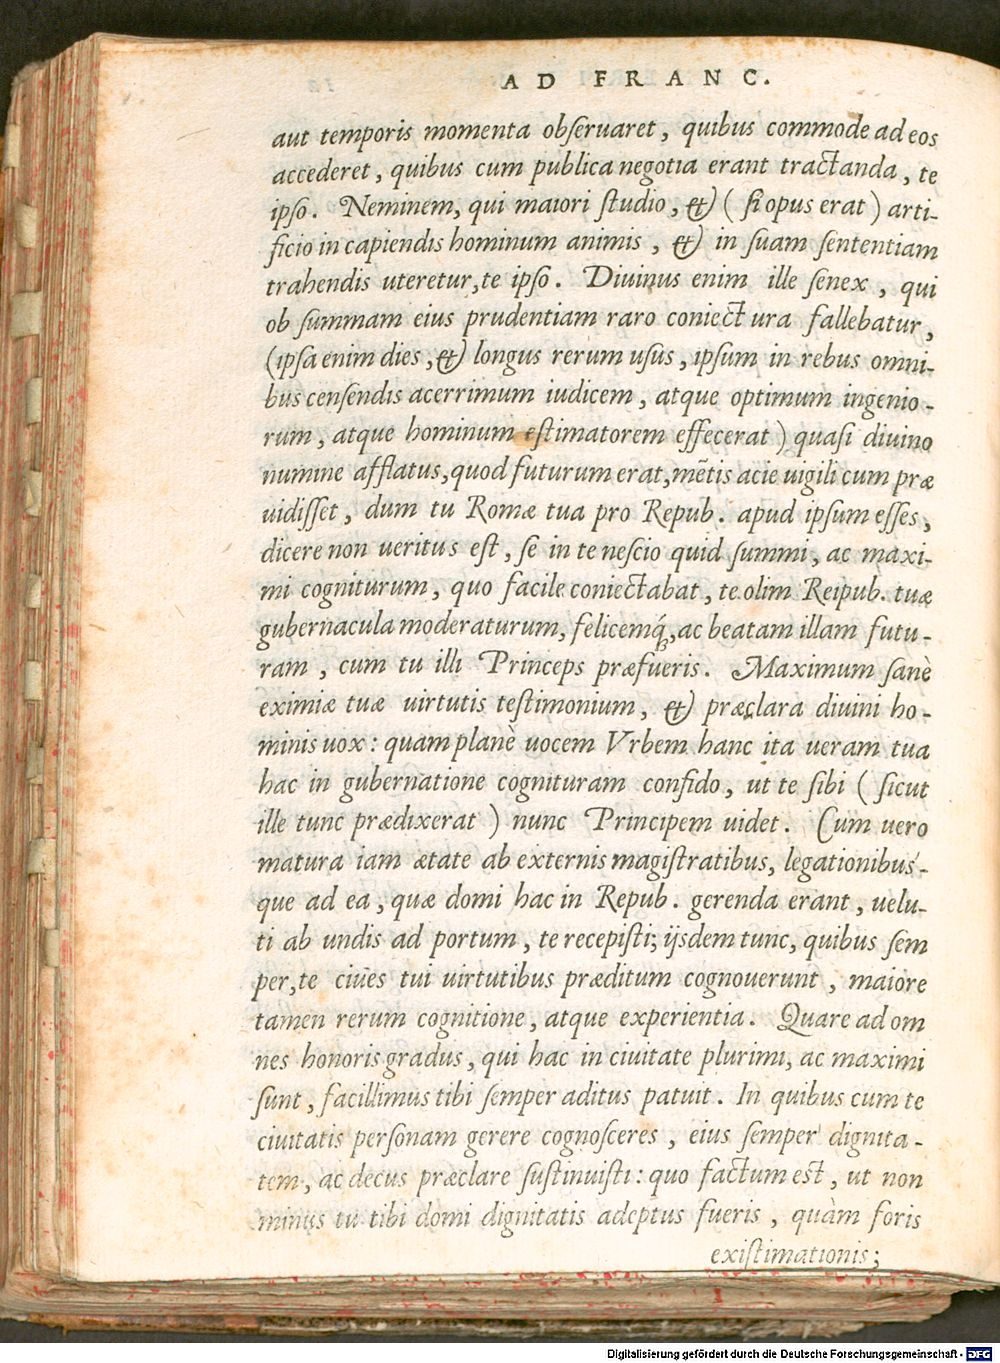 AD FRANC.
aut temporis momenta obſeruaret, quibus commode ad eos
accederet, quibus cum publica negotia erant tractanda, te
ipſo. Neminem, qui maiori ſtudio, & (ſi opus erat) arti-
ficio in capiendis hominum animis, & in ſuam ſententiam
trahendis uteretur, te ipſo. Diuinus enim ille ſenex, qui
ob ſummam eius prudentiam raro coniectura fallebatur,
(ipſa enim dies, & longus rerum uſus, ipſum in rebus omni-
bus cenſendis acerrimum iudicem, atque optimum ingenio-
rum, atque hominum eſtimatorem effecerat) quaſi diuino
numine afflatus, quod futurum erat, mẽtis acie uigili cum præ
uidiſſet, dum tu Romæ tua pro Repub. apud ipſum eſſes,
dicere non ueritus eſt, ſe in te neſcio quid ſummi, ac maxi-
mi cogniturum, quo facile coniectabat, te olim Reipub. tuæ
gubernacula moderaturum, felicemq́;, ac beatam illam futu-
ram, cum tu illi Princeps præfueris. Maximum ſanè
eximiæ tuæ uirtutis teſtimonium, & præclara diuini ho-
minis uox: quam planè uocem Vrbem hanc ita ueram tua
hac in gubernatione cognituram confido, ut te ſibi (ſicut
ille tunc prædixerat) nunc Principem uidet. Cum uero
matura iam ætate ab externis magiſtratibus, legationibus-
que ad ea, quæ domi hac in Repub. gerenda erant, uelu-
ti ab undis ad portum, te recepiſti; ijsdem tunc, quibus ſem
per, te ciues tui uirtutibus præditum cognouerunt, maiore
tamen rerum cognitione, atque experientia. Quare ad om
nes honoris gradus, qui hac in ciuitate plurimi, ac maximi
ſunt, facillimus tibi ſemper aditus patuit. In quibus cum te
ciuitatis perſonam gerere cognoſceres, eius ſemper dignita-
tem, ac decus præclare ſuſtinuiſti: quo factum eſt, ut non
minus tu tibi domi dignitatis adeptus fueris, quàm foris
exiſtimationis;
Digitalisierung gefördert durch die Deutsche Forschungsgemeinschaft - DFG